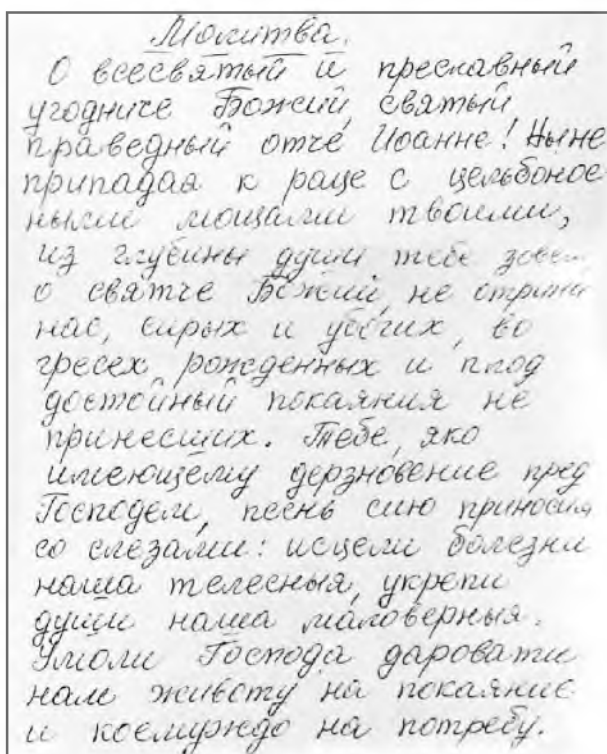 Молитва.
О всесвятый и преславный
угодниче Божий, святый
праведный отче Иоанне! Ныне
припадая к раце с цельбонос
ными мощами твоими,
из глубины души тебе зовем
о святче Божий, не отрини
нас, сирых и убогих, во
гресех рожденных и плод
достойный покаяния не
принесших. Тебе, яко
имеющему дерзновение пред
Господем, песнь сию приносим
со слезами: исцели болезни
наша телесныя, укрепи
души наша маловерныя.
Умоли Господа даровати
нам животу на покаяние
и коемуждо на потребу.